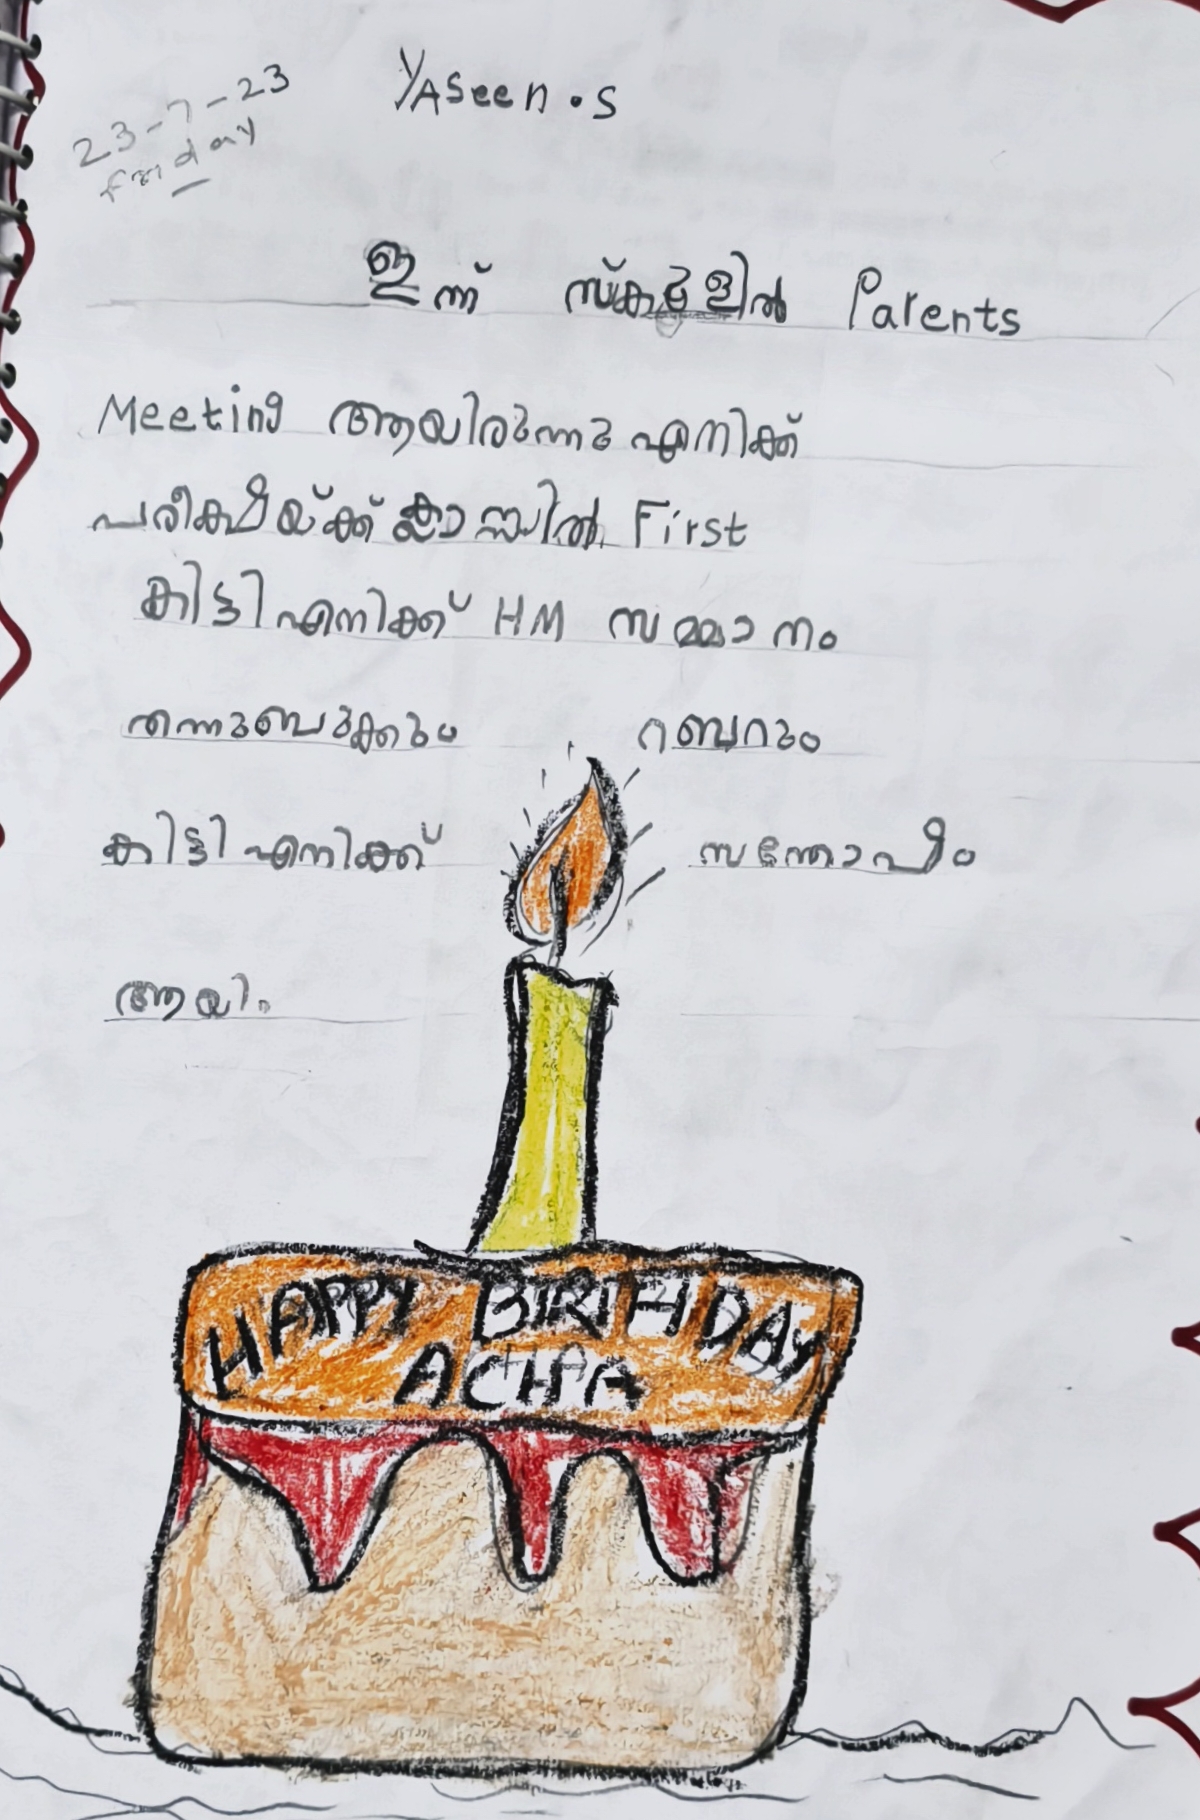 YAseen.S
23-7-23
friday
ഇന്ന് സ്കൂളിൽ Parents
Meeting ആയിരുന്നു എനിക്ക്
പരീക്ഷയ്ക്ക് ക്ലാസ്സിൽ First
കിട്ടി എനിക്ക് HM സമ്മാനം
തന്നു ബുക്കും റബറും
കിട്ടി എനിക്ക് സന്തോഷം
ആയി.
HAPPY BIRTHDAY
ACHA